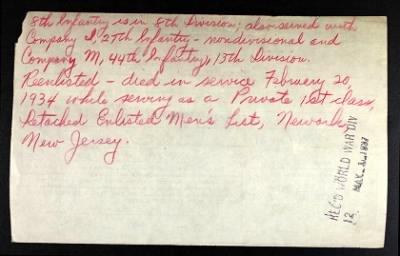 8th Infantry is in 8th Division; also served with
Company I, 27th Infantry - nondivisional and
Company M, 44th Infantry, 13th Division.
Reenlisted - died in service February 20,
1934 while serving as a Private 1st class,
Detached Enlisted Men's List, Newark,
New Jersey.
REC'D WORLD WAR DIV
12